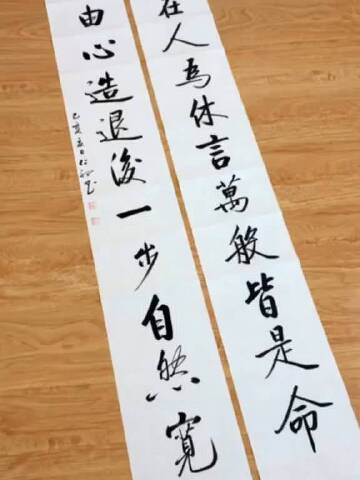 在人為休言萬般皆是命
由心造退後一步自然寬
己亥